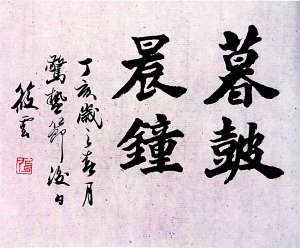 暮皷
晨鐘
丁亥歲之春月
驚蟄節後日
筱雲